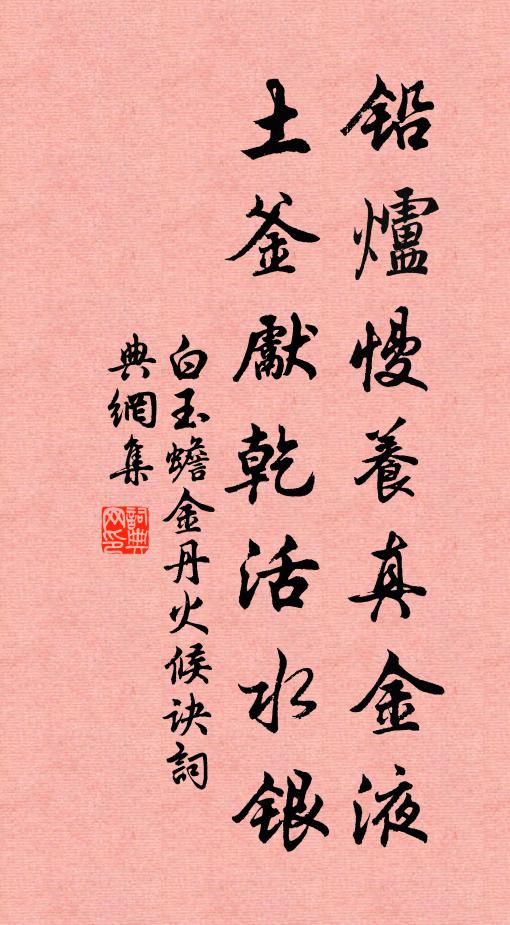 鉛爐慢養真金液
土釜獻乾活水銀
白玉蟾金丹火候訣詞
典網集
詞典
网印